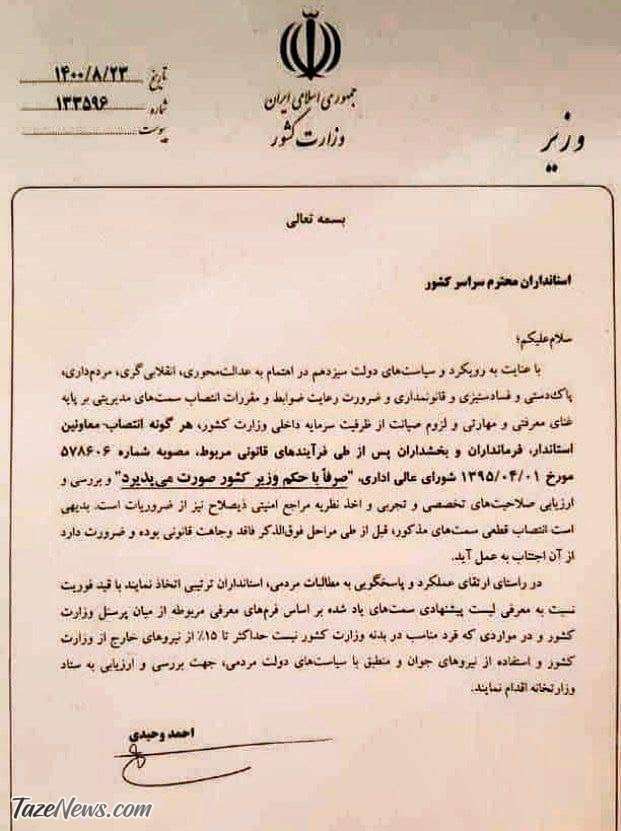 جمهوری اسلامی ایران
وزارت کشور
وزیر
تاریخ ۱۴۰۰/۸/۲۳
شماره ۱۳۳۵۹۶
پیوست
بسمه تعالی
استانداران محترم سراسر کشور
سلام‌علیکم؛
با عنایت به رویکرد و سیاست‌های دولت سیزدهم در اهتمام به عدالت‌محوری، انقلابی‌گری، مردم‌داری،
پاک‌دستی و فسادستیزی و قانونمداری و ضرورت رعایت ضوابط و مقررات انتصاب سمت‌های مدیریتی بر پایه
غنای معرفتی و مهارتی و لزوم صیانت از ظرفیت سرمایه داخلی وزارت کشور، هر گونه انتصاب معاونین
استاندار، فرمانداران و بخشداران پس از طی فرآیندهای قانونی مربوط، مصوبه شماره ۵۷۸۶۰۶
مورخ ۱۳۹۵/۰۴/۰۱ شورای عالی اداری، "صرفاً با حکم وزیر کشور صورت می‌پذیرد" و بررسی و
ارزیابی صلاحیت‌های تخصصی و تجربی و اخذ نظریه مراجع امنیتی ذیصلاح نیز از ضروریات است. بدیهی
است انتصاب قطعی سمت‌های مذکور، قبل از طی مراحل فوق‌الذکر فاقد وجاهت قانونی بوده و ضرورت دارد
از آن اجتناب به عمل آید.
در راستای ارتقای عملکرد و پاسخگویی به مطالبات مردمی، استانداران ترتیبی اتخاذ نمایند با قید فوریت
نسبت به معرفی لیست پیشنهادی سمت‌های یاد شده بر اساس فرم‌های معرفی مربوطه از میان پرسنل وزارت
کشور و در مواردی که فرد مناسب در بدنه وزارت کشور نیست حداکثر تا ۱۵٪ از نیروهای خارج از وزارت
کشور و استفاده از نیروهای جوان و منطبق با سیاست‌های دولت مردمی، جهت بررسی و ارزیابی به ستاد
وزارتخانه اقدام نمایند.
احمد وحیدی
TazeNews.com